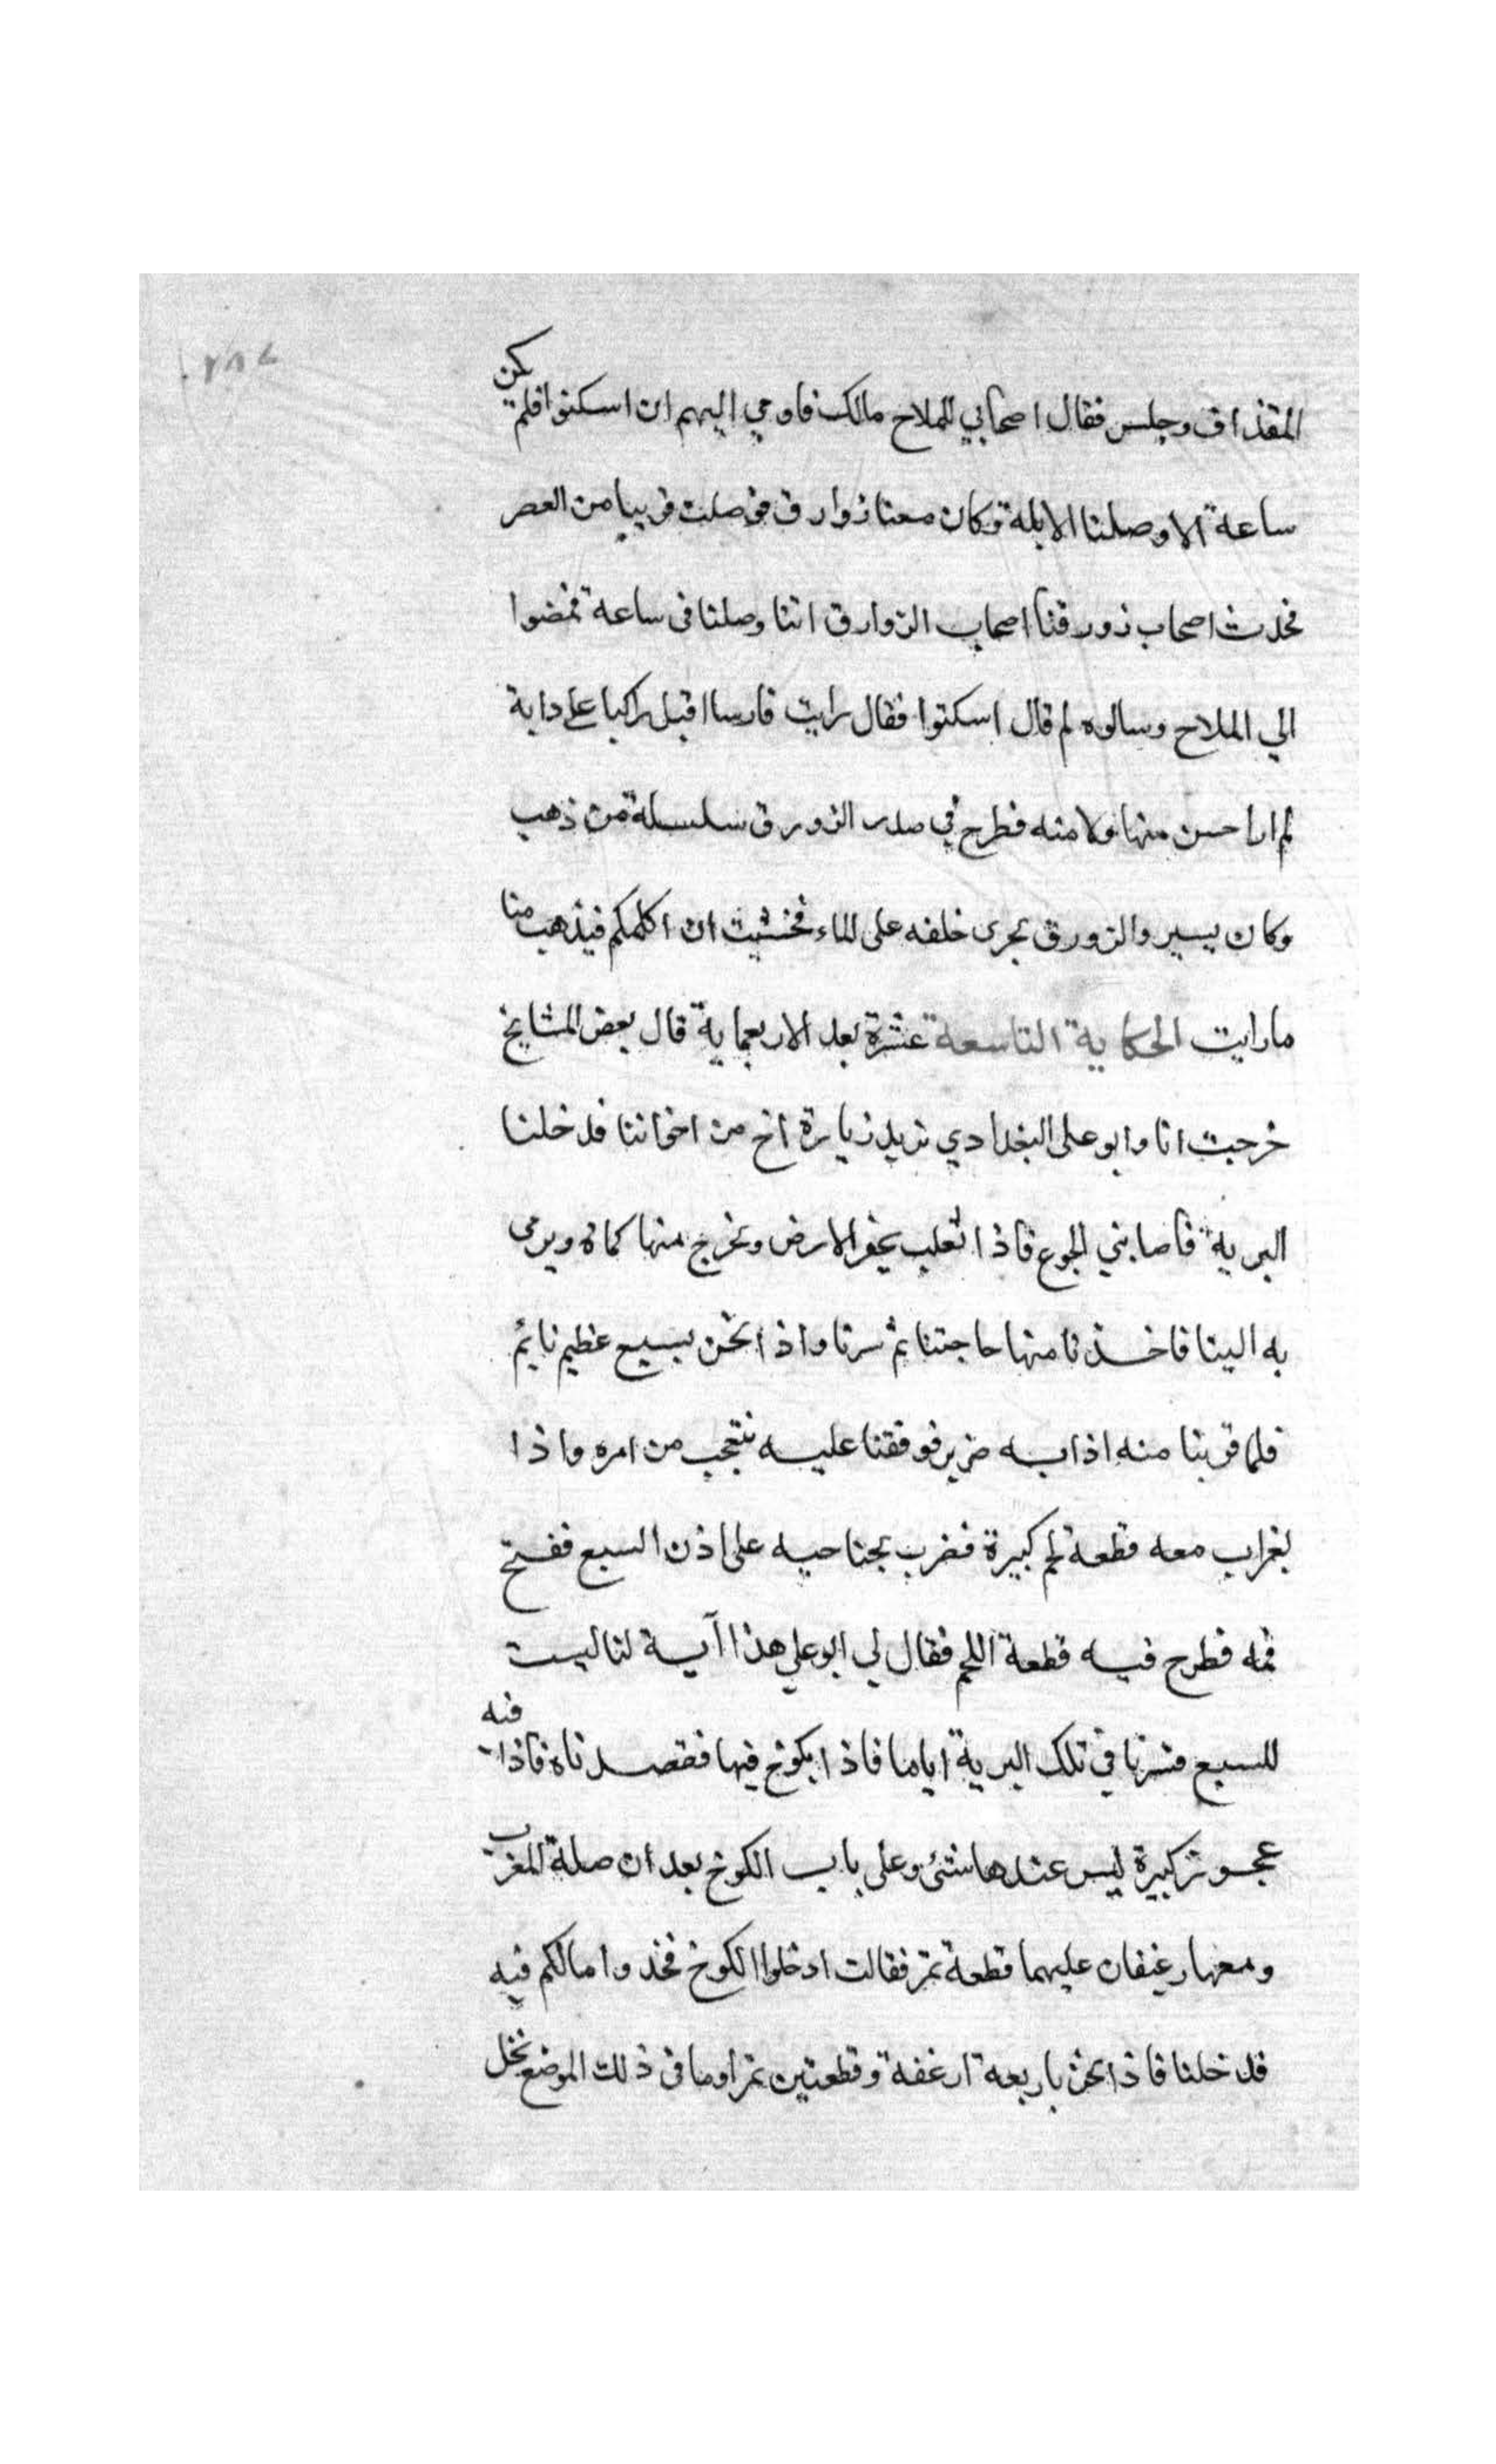 ٢٨٧
المقذاف وجلس فقال اصحابي للملاح مالك فاومي اليهم ان اسكتوا فلم تكن
ساعة الا وصلنا الابلة وكان معنا زوارق فوصلت قريبا من العصر
فحدث اصحاب زورقنا اصحاب الزوارق اننا وصلنا في ساعة فمضوا
الي الملاح وسالوه لم قال اسكتوا فقال رايت فارسا اقبل راكبا على دابة
لم ار احسن منها ولا منه فطرح في صدر الزورق سلسلة من ذهب
وكان يسير والزورق يجرى خلفه على الماء فخشيت ان اكلمكم فيذهب منا
ما رايت الحكاية التاسعة عشرة بعد الاربعماية قال بعض المشايخ
خرجت انا وابو على البغدادي نريد زيارة اخ من اخواننا فدخلنا
البرية فاصابني الجوع فاذا ثعلب يحفر الارض ويخرج منها كماة ويرمى
به الينا فاخذنا منها حاجتنا ثم سرنا واذا نحن بسبع عظيم نايم
فلما قربنا منه اذا به ضرير فوقفنا عليه نتعجب من امره واذا
بغراب معه قطعة لحم كبيرة فضرب بجناحيه على اذن السبع ففتح
فمه فطرح فيه قطعة اللحم فقال لي ابو علي هذا آية لنا ليست
للسبع فسرنا في تلك البرية اياما فاذا بكوخ فيها فقصدناه فاذا فيه
عجوز كبيرة ليس عندها شئ وعلى باب الكوخ بعد ان صلة المغرب
ومعها رغيفان عليهما قطعة تمر فقالت ادخلوا الكوخ فخذوا مالكم فيه
فدخلنا فاذا نحن باربعة ارغفة وقطعتين تمر اوما في ذلك الموضع نخل